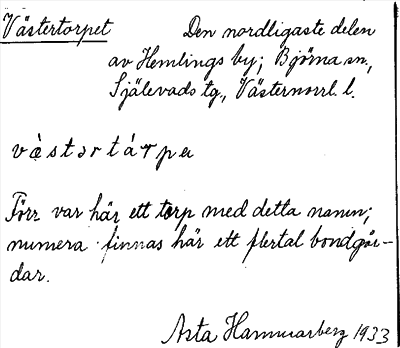 Västertorpet Den nordligaste delen
av Hemlings by; Björna sn.,
Själevads tg., Västernorrl. l.
våstərtárpə
Förr var här ett torp med detta namn;
numera finnas här ett flertal bondgår-
dar.
Asta Hammarberg 1933